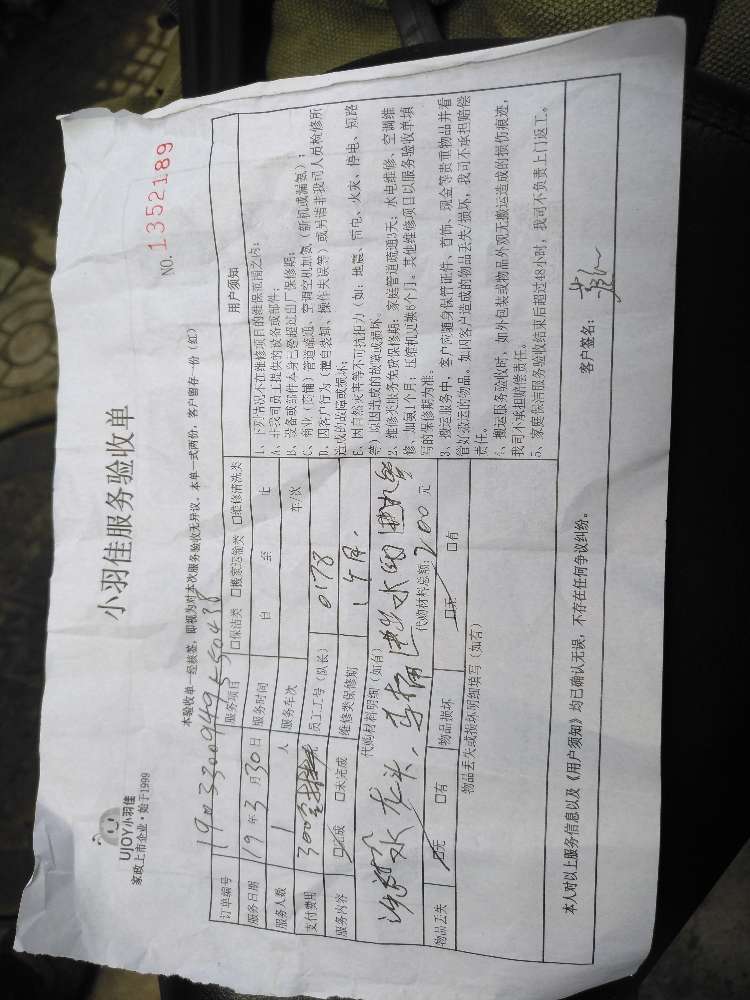 UJOY小羽佳
家政上市企业·始于1999
小羽佳服务验收单
NO.1352189
本验收单一经核签，即视为对本次服务验收无异议，本单一式两份，客户留存一份（红）
订单编号
服务日期 19年3月30日
服务人数 1 人
支付费用 300
服务内容 □完成 □未完成
服务项目 □保洁类 □搬家运输类 □维修清洗类
服务时间 自 至 止
服务车次 车/次
员工工号（队长） 0178
维修类保修期
代购材料明细（如有）
水龙头、马桶进水阀
代购材料总额：200元
物品丢失 □无 □有 物品损坏 □无 □有
物品丢失或损坏明细填写（如有）
用户须知
1、下列情况不在维修项目的维保范围之内：
A、非我司员工提供的设备或部件；
B、设备或部件本身已经超过出厂保修期；
C、商业（店铺）管道疏通、空调空机加氨（新机或漏氨）；
D、因客户行为（擅自装卸、操作失误等）或另请非我司人员检修所
造成的故障或损坏；
E、因自然灾害等不可抗拒力（如：地震、雷电、火灾、停电、短路
等）原因造成的故障或损坏。
2、维修类服务免费保修期：家庭管道疏通3天；水电维修、空调维
修、加氨1个月；压缩机更换6个月。其他维修项目以服务验收单填
写的保修期为准。
3、搬运服务中，客户应随身保管证件、首饰、现金等贵重物品并看
管好搬运的物品。如因客户造成的物品丢失/损坏，我司不承担赔偿
责任。
4、搬运服务验收时，如外包装或物品外观无搬运造成的损伤痕迹，
我司不承担赔偿责任。
5、家庭保洁服务验收结束后超过48小时，我司不负责上门返工。
本人对以上服务信息以及《用户须知》均已确认无误，不存在任何争议纠纷。
客户签名：